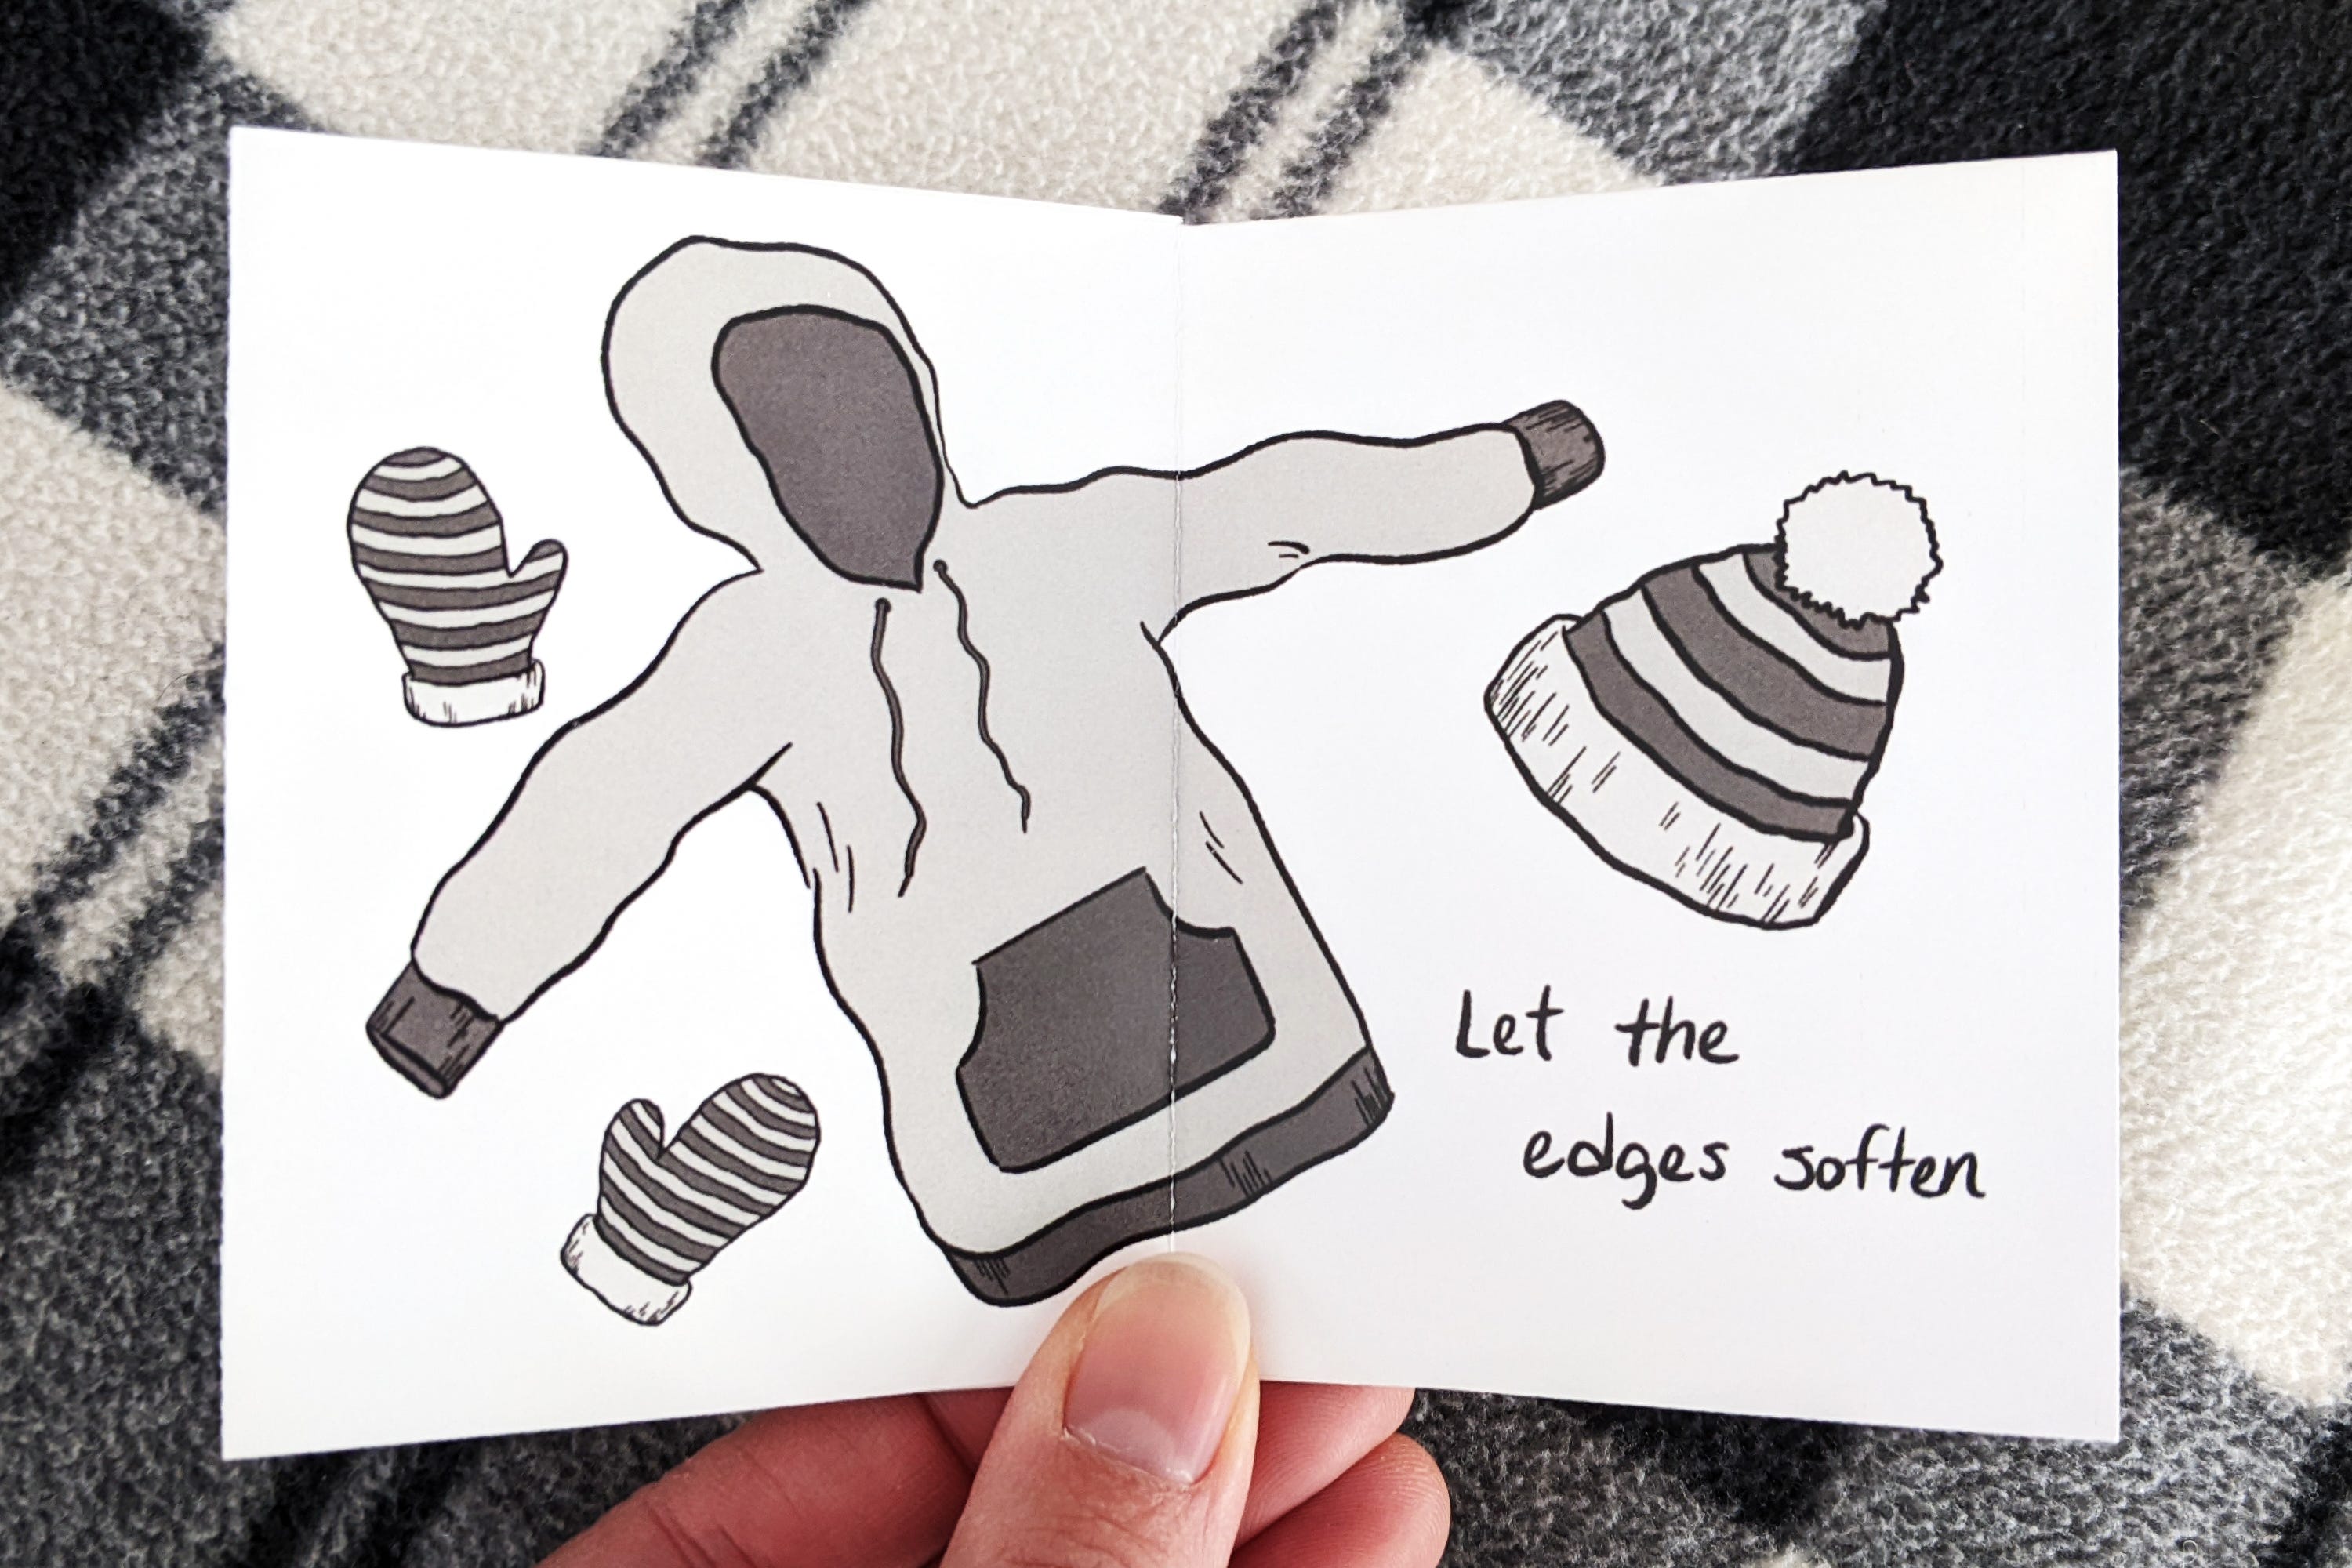 Let the
edges soften